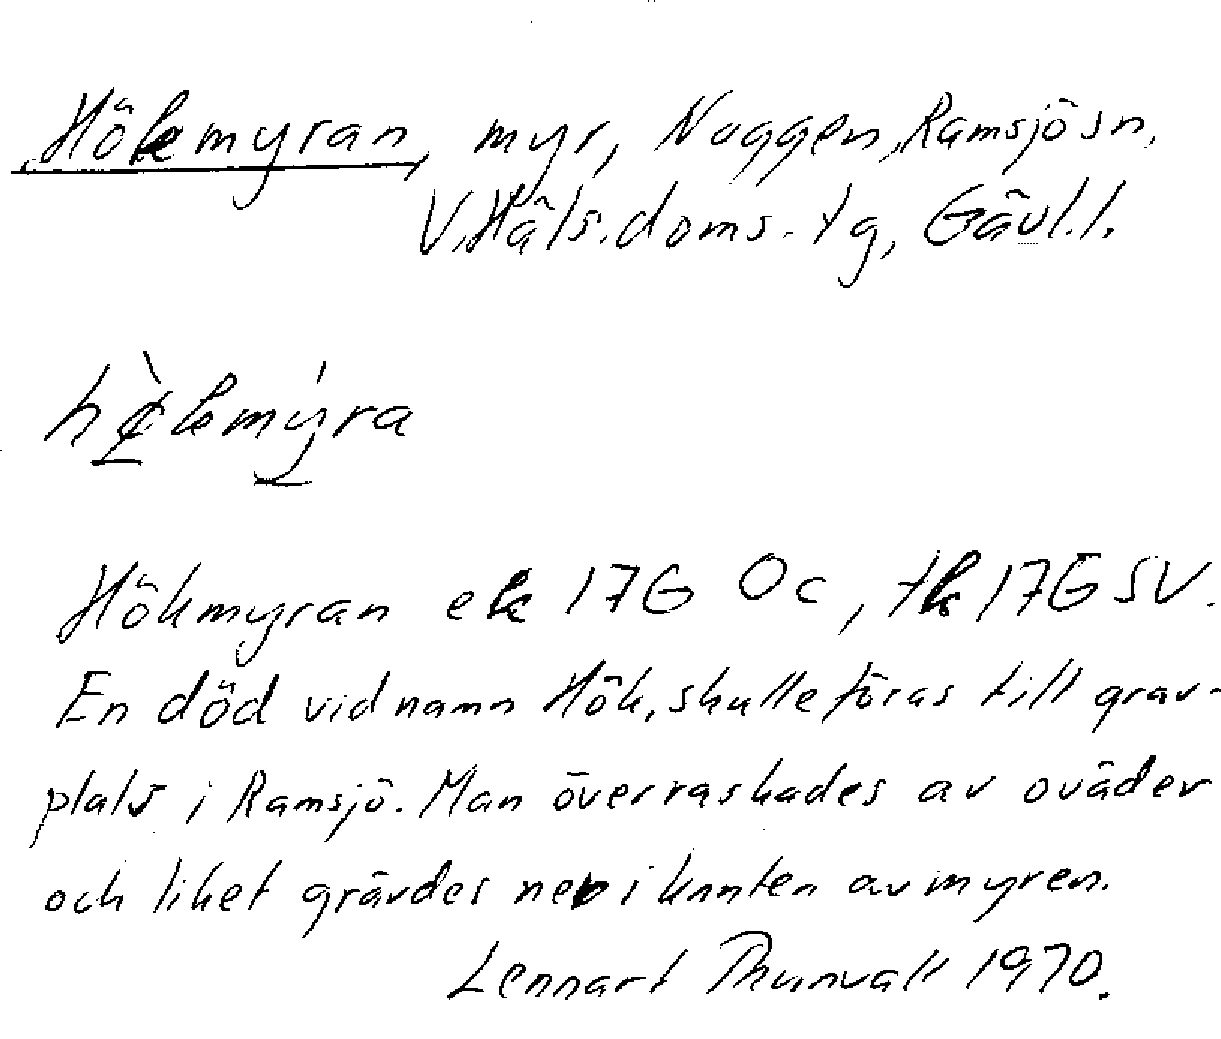 Hökmyran, myr, Naggen, Ramsjö sn,
V. Häls. doms. tg, Gävl. l.
hø̀kmýra
Hökmyran ek 17G 0c, tk 17G SV.
En död vid namn Hök, skulle föras till grav-
plats i Ramsjö. Man överraskades av oväder
och liket grävdes ner i kanten av myren.
Lennart Thunvall 1970.